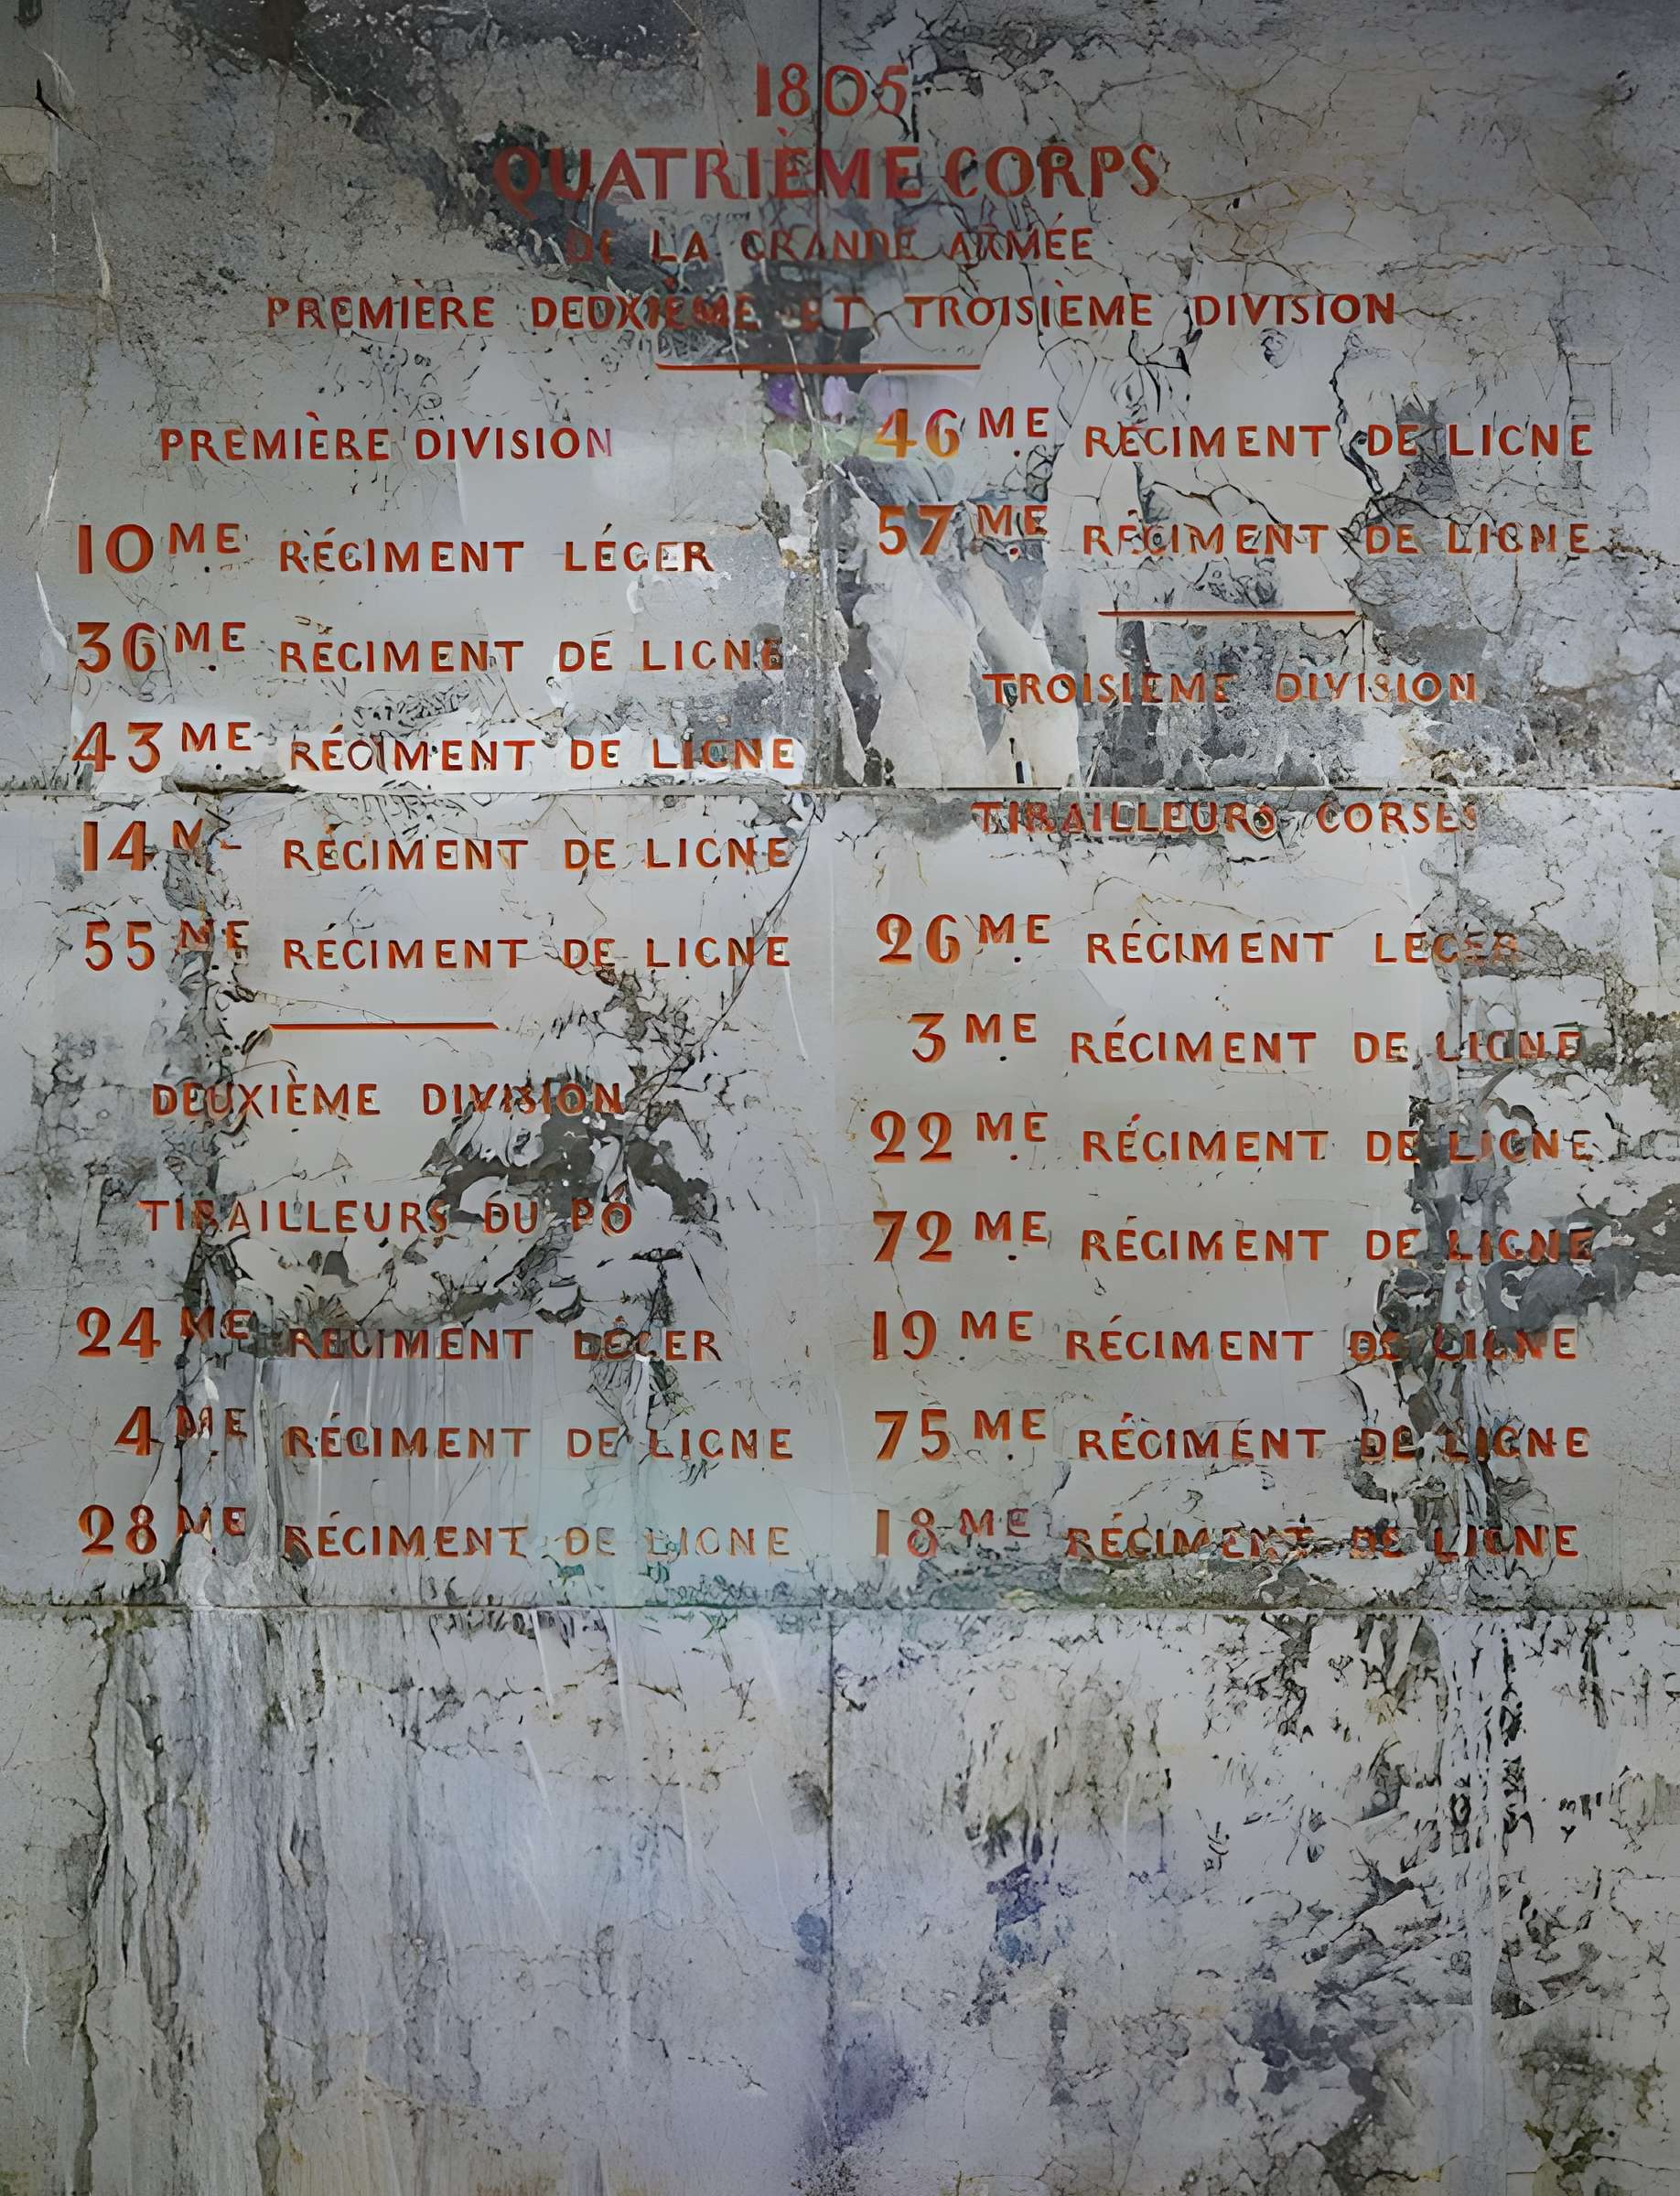 1805
QUATRIÈME CORPS
DE LA GRANDE ARMÉE
PREMIÈRE DEUXIÈME ET TROISIÈME DIVISION
PREMIÈRE DIVISION
10ME RÉGIMENT LÉGER
36ME RÉGIMENT DE LIGNE
43ME RÉGIMENT DE LIGNE
14ME RÉGIMENT DE LIGNE
55ME RÉGIMENT DE LIGNE
DEUXIÈME DIVISION
TIRAILLEURS DU PÔ
24ME RÉGIMENT LÉGER
4ME RÉGIMENT DE LIGNE
28ME RÉGIMENT DE LIGNE
46ME RÉGIMENT DE LIGNE
57ME RÉGIMENT DE LIGNE
TROISIÈME DIVISION
TIRAILLEURS CORSES
26ME RÉGIMENT LÉGER
3ME RÉGIMENT DE LIGNE
22ME RÉGIMENT DE LIGNE
72ME RÉGIMENT DE LIGNE
19ME RÉGIMENT DE LIGNE
75ME RÉGIMENT DE LIGNE
18ME RÉGIMENT DE LIGNE